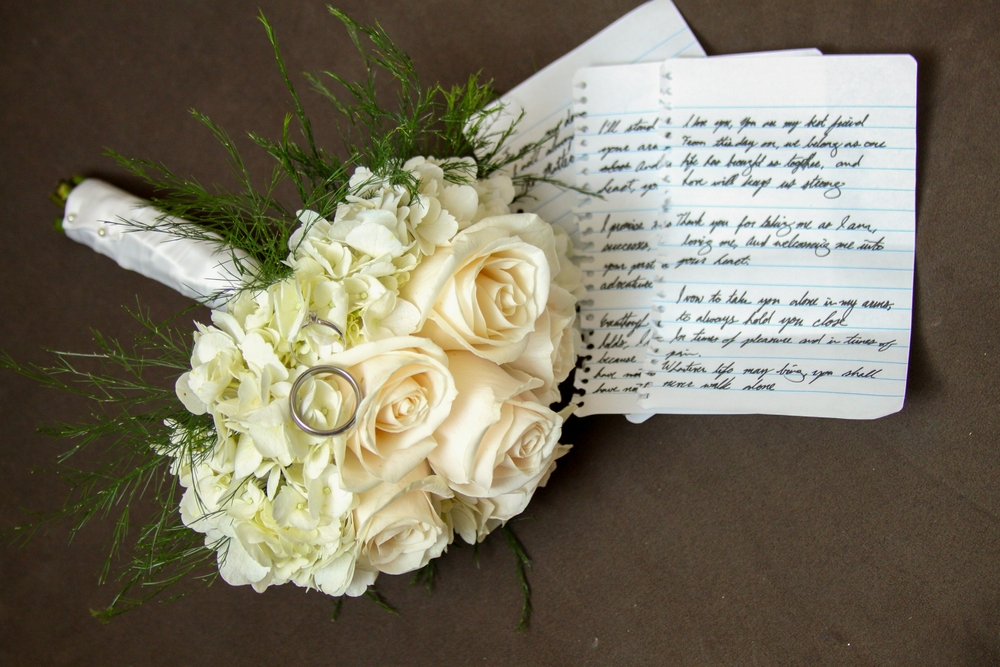 I'll stand
your are
heart, yo
I promise
success,
your past
adventure
because
have not
I love you, You are my best friend
From this day on, we belong as one
life has brought us together, and
love will keep us strong
Thank you for taking me as I am,
loving me, and welcoming me into
your heart.
I vow to take you alone in my arms,
to always hold you close
In times of pleasure and in times of
pain.
Whatever life may bring you shall
never walk alone